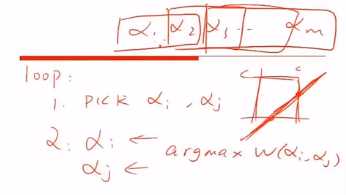 α₁ α₂ α₃ ... αₘ
loop:
C C
1. PICK αᵢ, αⱼ
2. αᵢ ← argmax W(αᵢ, αⱼ)
αⱼ ←